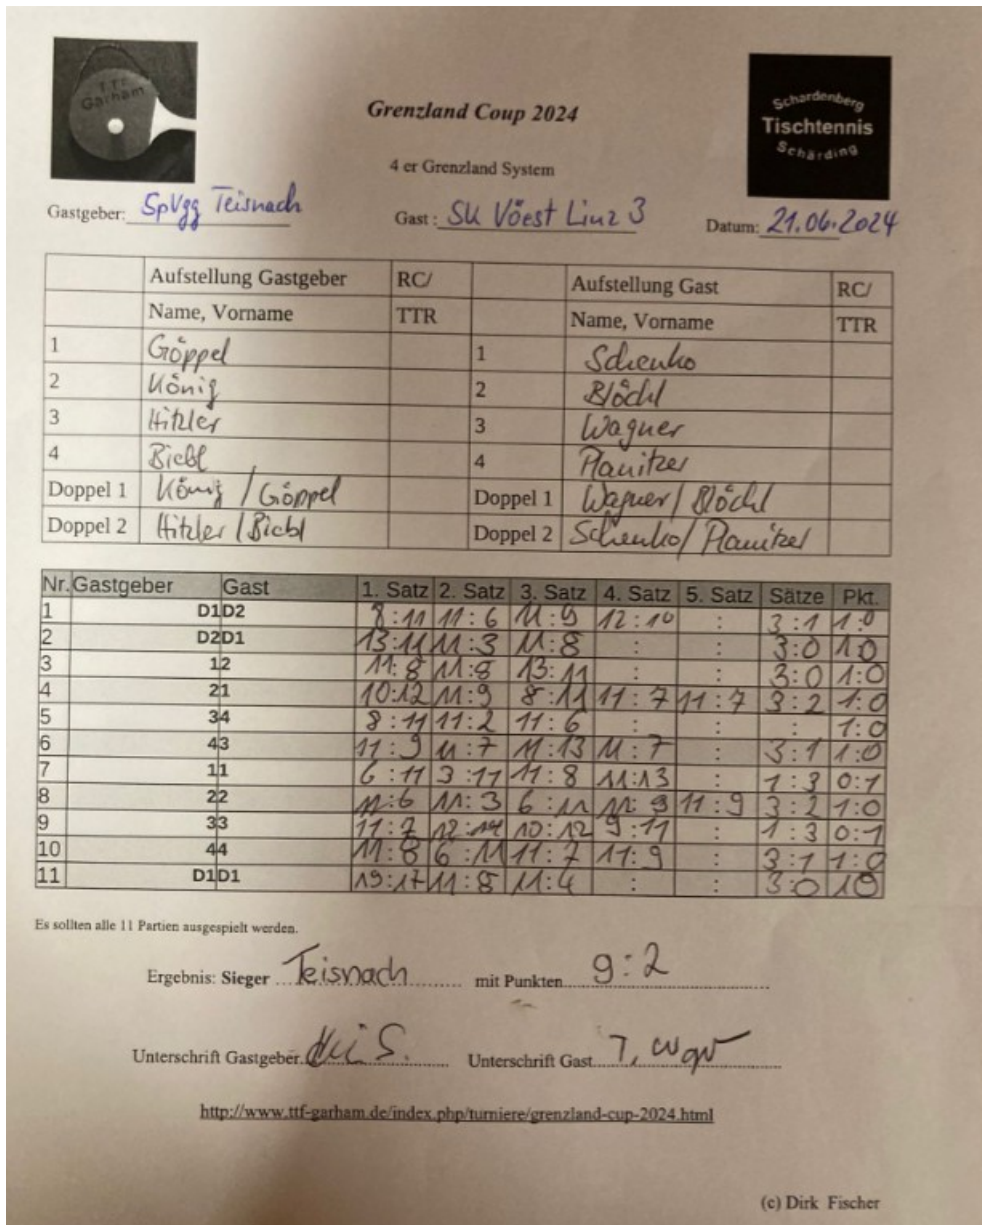 T.T.F
Garham
Schardenberg
Tischtennis
Schärding
Grenzland Coup 2024
4 er Grenzland System
Gastgeber: SpVgg Teisnach Gast: SK Vöest Linz 3 Datum: 21.06.2024
Aufstellung Gastgeber RC/ Aufstellung Gast RC/
Name, Vorname TTR Name, Vorname TTR
1 Göppel 1 Schenko
2 König 2 Blöchl
3 Hitzler 3 Wagner
4 Biebl 4 Planitzer
Doppel 1 König / Göppel Doppel 1 Wagner / Blöchl
Doppel 2 Hitzler / Biebl Doppel 2 Schenko / Planitzer
Nr. Gastgeber Gast 1. Satz 2. Satz 3. Satz 4. Satz 5. Satz Sätze Pkt.
1 D1 D2 8:11 11:6 11:9 12:10 : 3:1 1:0
2 D2 D1 13:11 11:3 11:8 : : 3:0 1:0
3 1 2 11:8 11:8 13:11 : : 3:0 1:0
4 2 1 10:12 11:9 8:11 11:7 11:7 3:2 1:0
5 3 4 8:11 11:2 11:6 : : : 1:0
6 4 3 11:9 11:7 11:13 11:7 : 3:1 1:0
7 1 1 6:11 3:11 11:8 11:13 : 1:3 0:1
8 2 2 11:6 11:3 6:11 11:9 11:9 3:2 1:0
9 3 3 11:7 12:14 10:12 9:11 : 1:3 0:1
10 4 4 11:8 6:11 11:7 11:9 : 3:1 1:0
11 D1 D1 19:17 11:8 11:4 : : 3:0 1:0
Es sollten alle 11 Partien ausgespielt werden.
Ergebnis: Sieger Teisnach mit Punkten 9:2
Unterschrift Gastgeber. Unterschrift Gast
http://www.ttf-garham.de/index.php/turniere/grenzland-cup-2024.html
(c) Dirk Fischer